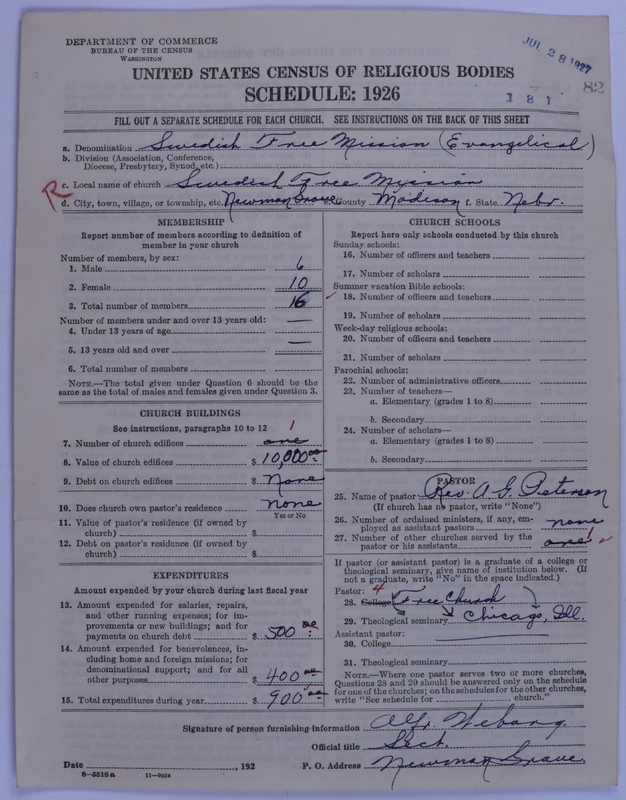 DEPARTMENT OF COMMERCE
BUREAU OF THE CENSUS
WASHINGTON
JUL 28 1927
82
UNITED STATES CENSUS OF RELIGIOUS BODIES
SCHEDULE: 1926
1 8 1
FILL OUT A SEPARATE SCHEDULE FOR EACH CHURCH. SEE INSTRUCTIONS ON THE BACK OF THIS SHEET
a. Denomination Swedish Free Mission (Evangelical)
b. Division (Association, Conference, Diocese, Presbytery, Synod, etc.)
R
c. Local name of church Swedish Free Mission
d. City, town, village, or township, etc. Newman Grove e. County Madison f. State Nebr.
MEMBERSHIP
Report number of members according to definition of
member in your church
Number of members, by sex:
1. Male 6
2. Female 10
3. Total number of members 16
Number of members under and over 13 years old: —
4. Under 13 years of age
5. 13 years old and over —
6. Total number of members
NOTE.—The total given under Question 6 should be
same as the total of males and females given under Question 3.
CHURCH BUILDINGS
See instructions, paragraphs 10 to 12
1
7. Number of church edifices one
8. Value of church edifices $ 10,000 00
9. Debt on church edifices $ None
10. Does church own pastor's residence none
Yes or No
11. Value of pastor's residence (if owned by
church) $
12. Debt on pastor's residence (if owned by
church) $
EXPENDITURES
Amount expended by your church during last fiscal year
13. Amount expended for salaries, repairs,
and other running expenses; for im-
provements or new buildings; and for
payments on church debt $ 500 00
14. Amount expended for benevolences, in-
cluding home and foreign missions; for
denominational support; and for all
other purposes $ 400 00
15. Total expenditures during year $ 900 00
CHURCH SCHOOLS
Report here only schools conducted by this church
Sunday schools:
16. Number of officers and teachers
17. Number of scholars
Summer vacation Bible schools:
18. Number of officers and teachers
19. Number of scholars
Week-day religious schools:
20. Number of officers and teachers
21. Number of scholars
Parochial schools:
22. Number of administrative officers
23. Number of teachers—
a. Elementary (grades 1 to 8)
b. Secondary
24. Number of scholars—
a. Elementary (grades 1 to 8)
b. Secondary
PASTOR
25. Name of pastor Rev. A. G. Peterson
(If church has no pastor, write "None")
26. Number of ordained ministers, if any, em-
ployed as assistant pastors none
27. Number of other churches served by the
pastor or his assistants one 1
If pastor (or assistant pastor) is a graduate of a college or
theological seminary, give name of institution below. (If
not a graduate, write "No" in the space indicated.)
Pastor: 4
28. College Free Church
29. Theological seminary Chicago, Ill.
Assistant pastor:
30. College
31. Theological seminary
NOTE.—Where one pastor serves two or more churches,
Questions 28 and 29 should be answered only on the schedule
for one of the churches; on the schedules for the other churches,
write "See schedule for church."
Signature of person furnishing information Alfr.
Official title Sect.
Date , 192 P. O. Address Newman Grove
8-5518a 11-9024